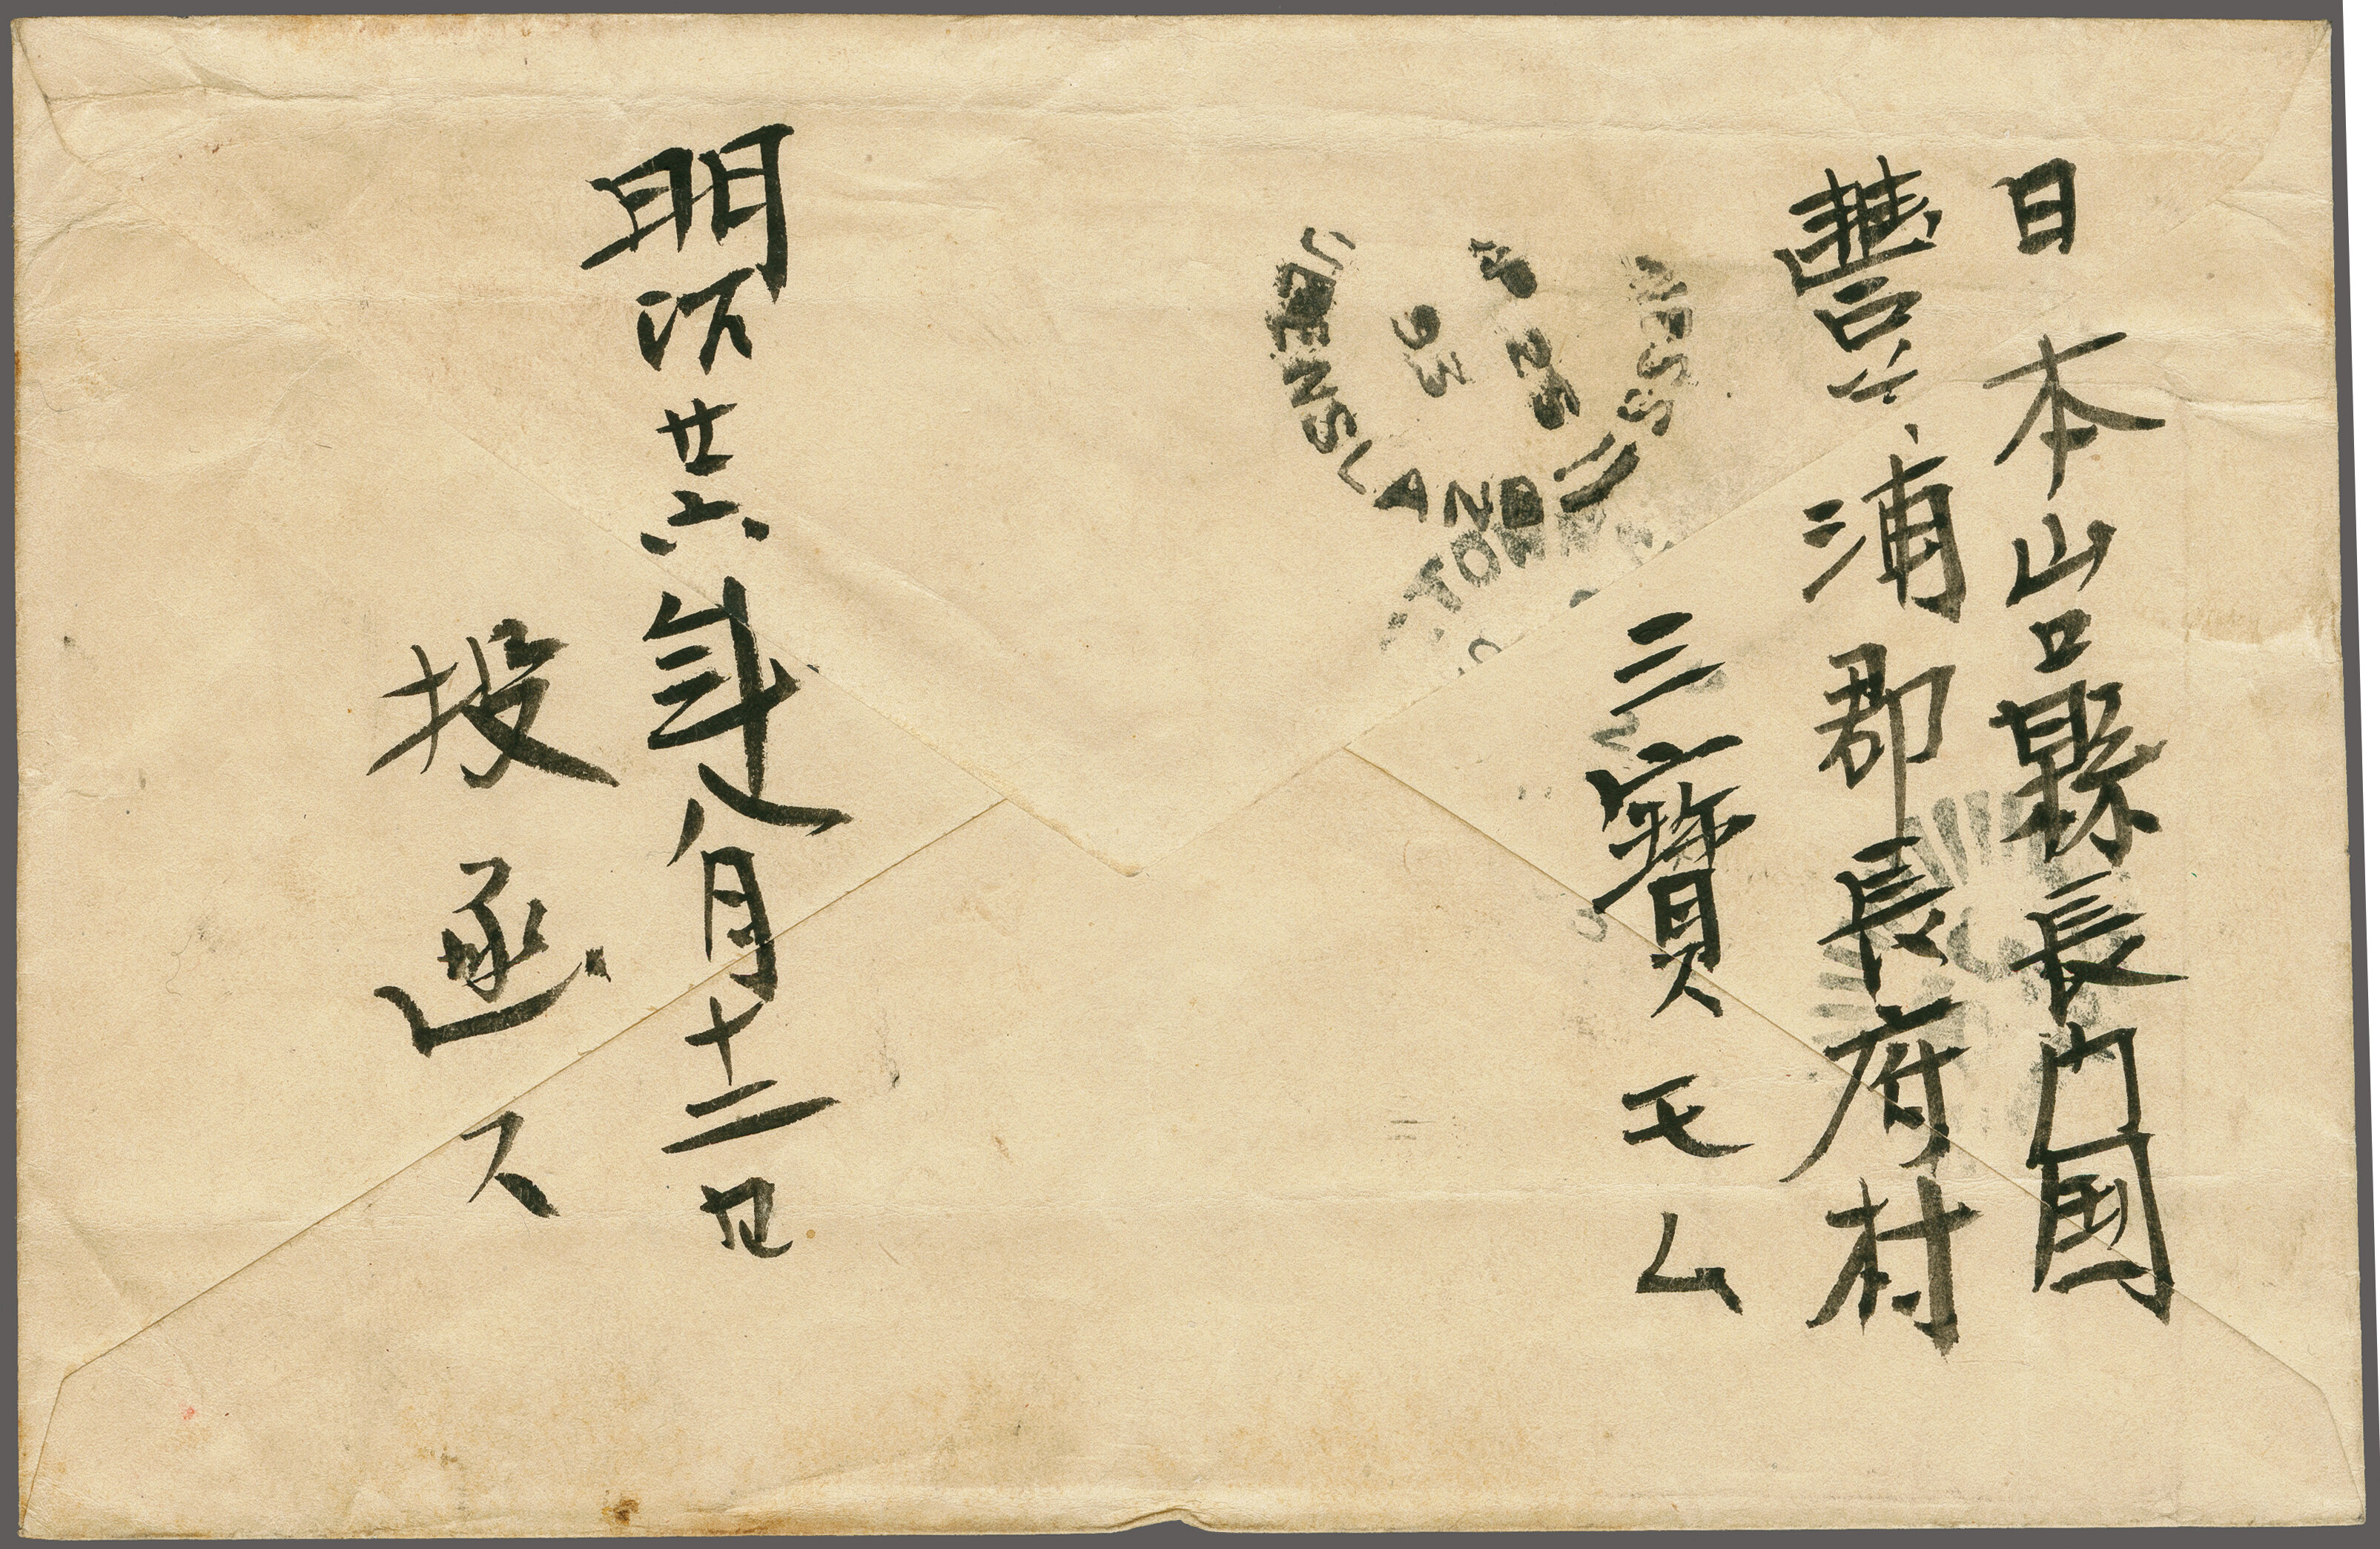 日本山口縣長門國
豐浦郡長府村
三寳モム
明治廿六年八月十二日
投函ス
QUEENSLAND
25
93
TOWN